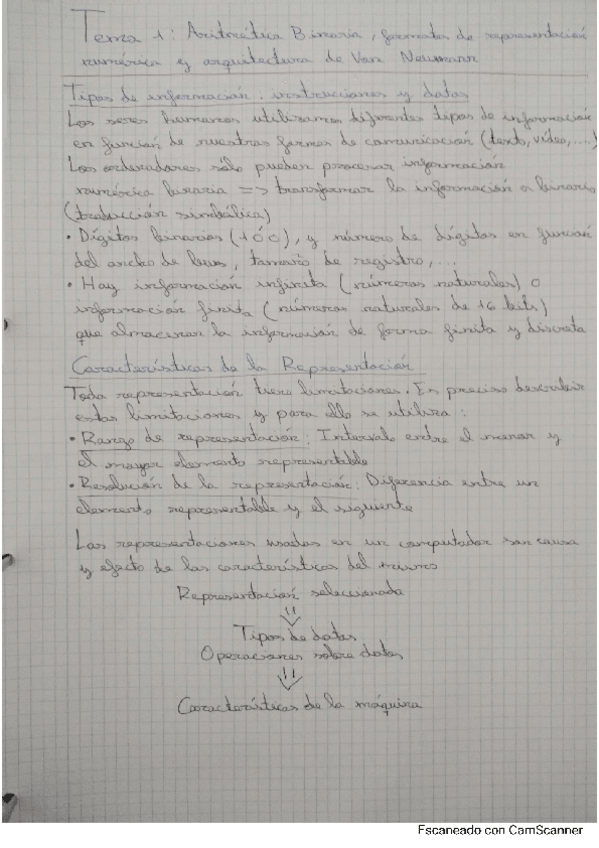 Tema 1: Aritmética Binaria, formatos de representación
numérica y arquitectura de Von Neumann
Tipos de información: instrucciones y datos
Los seres humanos utilizamos diferentes tipos de información
en función de nuestras formas de comunicación (texto, vídeo, ....)
Los ordenadores sólo pueden procesar información
numérica binaria => transformar la información a binario
(traducción simbólica)
• Dígitos binarios (1 ó 0), y número de dígitos en función
del ancho de buses, tamaño de registro, ...
• Hay información infinita (números naturales) o
información finita (números naturales de 16 bits)
que almacenan la información de forma finita y discreta
Características de la Representación
Toda representación tiene limitaciones. Es preciso describir
estas limitaciones y para ello se utiliza:
• Rango de representación: Intervalo entre el menor y
el mayor elemento representable
• Resolución de la representación: Diferencia entre un
elemento representable y el siguiente
Las representaciones usadas en un computador son causa
y efecto de las características del mismo
Representación seleccionada
Tipos de datos
Operaciones sobre datos
Características de la máquina
Escaneado con CamScanner